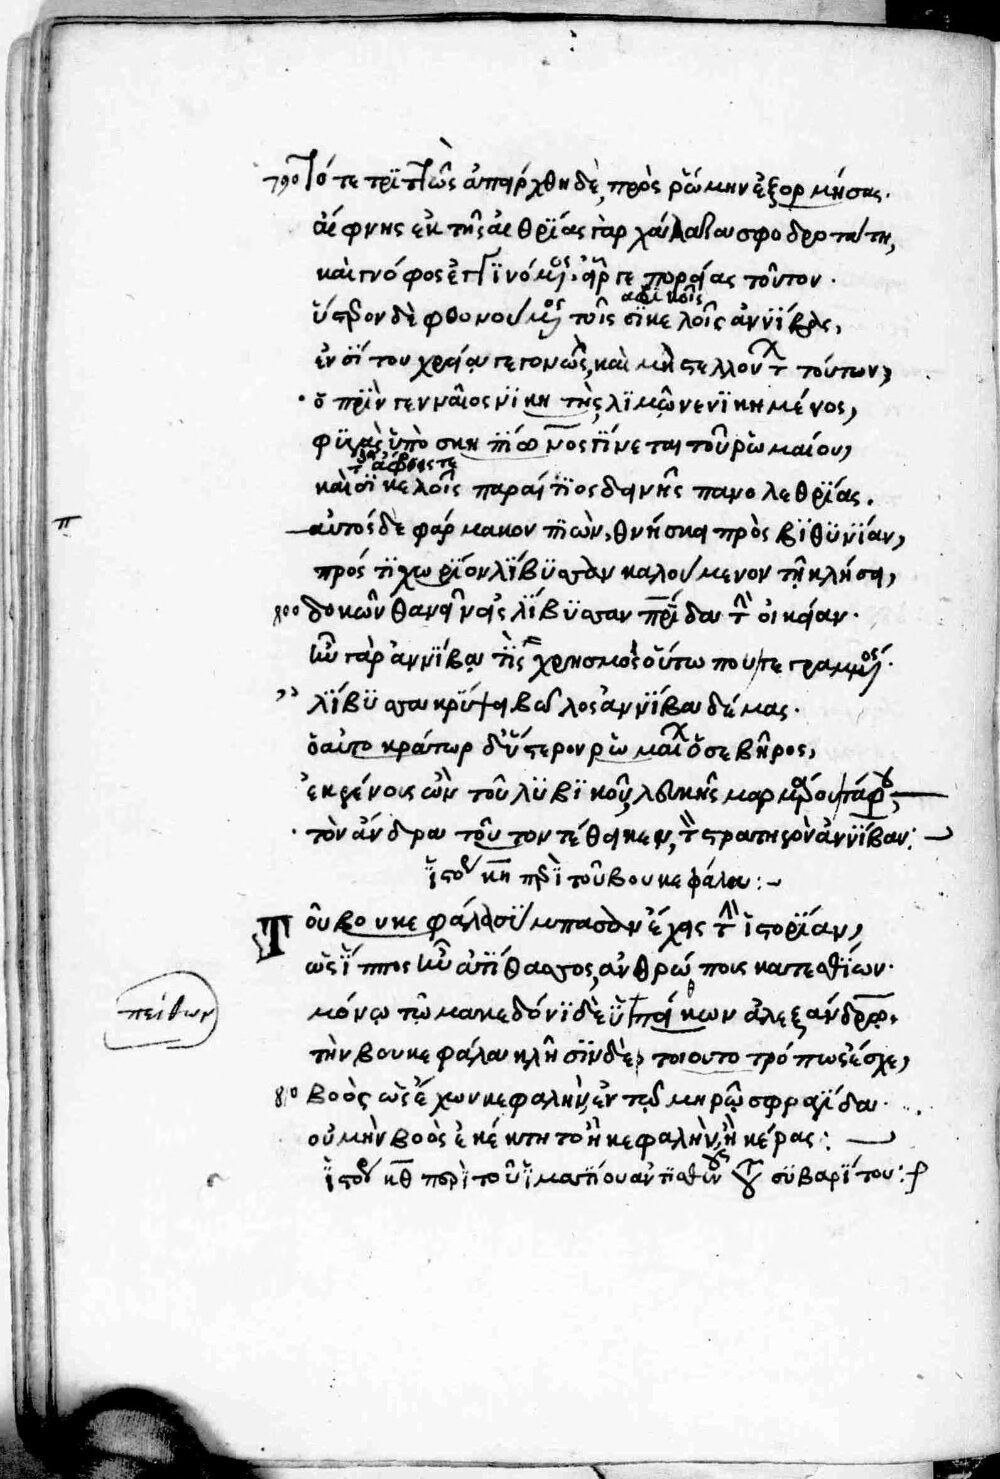 790 τότε τρίτος ἀπήρχθη δὲ, πρὸς ῥώμην ἐξορμήσας.
αἴφνης ἐκ τῆς αἰθρίας γὰρ χάλαζα σφοδροτάτη,
καὶ γνόφος ἐπιγινόμενος. εἶργε πορείας τοῦτον.
ὕστερον δὲ φθονούμενος τοῖς σικελοῖς ἀννίβας,
ἀφρικοῖς
ἐν σίτου χρείᾳ γεγονὼς, καὶ μὴ στελλόντων τούτων,
ὁ πρὶν γενναῖος νικητὴς λιμῷ νενικημένος,
φυγὰς ὑπὸ σκηπίωνος γίνεται τοῦ ῥωμαίου,
τοῖς ἄφροις τε
καὶ σικελοῖς παραίτιος δεινῆς πανολεθρίας.
π
αὐτὸς δὲ φάρμακον πιὼν, θνήσκει πρὸς βιθυνίαν,
πρός τι χωρίον λίβυσσαν καλούμενον τῇ κλήσει,
800 δοκῶν θανεῖν εἰς λίβυσσαν πατρίδα τὴν οἰκείαν.
ἦν γὰρ ἀννίβᾳ τις χρησμὸς οὕτω που γεγραμμένος.
λίβυσσα κρύψει βῶλος ἀννίβα δέμας.
ὁ αὐτοκράτωρ δ' ὕστερον ῥωμαίων ὁ σεβῆρος,
ἐκ γένους ὢν τοῦ λυβικοῦ, λευκῆς μαρμάρου τάφῳ,
τὸν ἄνδρα τοῦτον τέθεικεν, τὸν στρατηγὸν ἀννίβαν:
ἱστορία κη περὶ τοῦ βουκεφάλα:
Τοῦ βουκεφάλα σύμπασαν ἔχεις τὴν ἱστορίαν,
ὡς ἵππος ἦν ἀτίθασσος, ἀνθρώποις κατεσθίων.
πείθων
μόνῳ τῷ μακεδόνι δὲ ὑπείκων ἀλεξάνδρῳ.
τὴν βουκεφάλα κλῆσιν δὲ, τοιουτοτρόπως ἔσχε,
810 βοὸς ὡς ἔχων κεφαλὴν, ἐν τῷ μηρῷ σφραγίδα.
οὐ μὴν βοὸς ἐκέκτητο ἢ κεφαλὴν, ἢ κέρας:
ἱστορία κθ περὶ τοῦ ἱματίου ἀντισθένους τοῦ συβαρίτου: